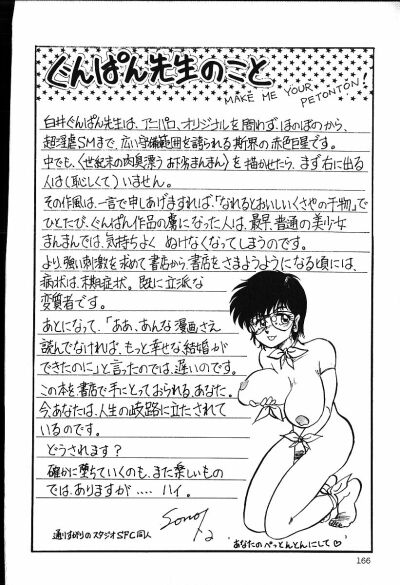 ぐんぱん先生のこと
MAKE ME YOUR PETONTON!
白井ぐんぱん先生は、アニパロ、オリジナルを問わず、ほのぼのから、
超淫虐SMまで、広い守備範囲を誇られる斯界の赤色巨星です。
中でも、〈世紀末の肉臭漂うお下劣まんまん〉を描かせたら、まず右に出る
人は(恥しくて)いません。
その作風は、一言で申しあげますれば、「なれるとおいしいくさやの干物」で
ひとたび、ぐんぱん作品の虜になった人は、最早、普通の美少女
まんまんでは、気持ちよくぬけなくなってしまうのです。
より、強い刺激を求めて書店から書店をさまようようになる頃には、
病状は、末期症状。既に立派な
変質者です。
あとになって、「ああ、あんな漫画さえ
読んでなければ、もっと幸せな結婚が
できたのに」と言ったのでは、遅いのです。
この本を書店で手にとっておられる、あなた。
今、あなたは、人生の岐路に立たされて
いるのです。
どうされます?
確かに堕ちていくのも、また楽しいもの
では、ありますが‥‥ ハイ。
通りすがりのスタジオSFC同人
あなたのぺっとんとんにして♡
166